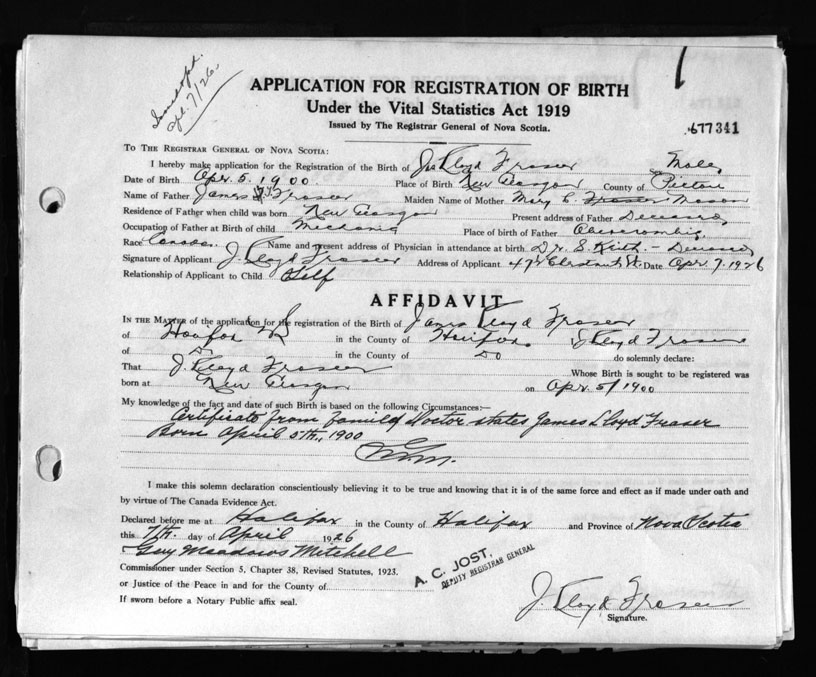 Apl. 7/26.
APPLICATION FOR REGISTRATION OF BIRTH
Under the Vital Statistics Act 1919
Issued by The Registrar General of Nova Scotia.
677341
TO THE REGISTRAR GENERAL OF NOVA SCOTIA:
I hereby make application for the Registration of the Birth of Jas Lloyd Fraser Sex Male
Date of Birth Apr. 5. 1900. Place of Birth New Glasgow County of Pictou
Name of Father James Fraser Maiden Name of Mother Mary C. Fraser Mason
Residence of Father when child was born New Glasgow Present address of Father Deceased
Occupation of Father at Birth of child Mechanic Place of birth of Father Abercrombie
Race Canada. Name and present address of Physician in attendance at birth Dr. S. Keith - Deceased
Signature of Applicant J. Lloyd Fraser Address of Applicant 47½ Chestnut St. Date Apr 7. 1926
Relationship of Applicant to Child Self
AFFIDAVIT
IN THE MATTER of the application for the registration of the Birth of James Lloyd Fraser
of Halifax NS in the County of Halifax. J Lloyd Fraser
of Do in the County of Do do solemnly declare:
That J. Lloyd Fraser Whose Birth is sought to be registered was
born at New Glasgow on Apr. 5/1900
My knowledge of the fact and date of such Birth is based on the following Circumstances:—
Certificate from Family Doctor states James Lloyd Fraser
Born April 5th., 1900
G.M.M.
I make this solemn declaration conscientiously believing it to be true and knowing that it is of the same force and effect as if made under oath and
by virtue of The Canada Evidence Act.
Declared before me at Halifax in the County of Halifax and Province of Nova Scotia
this 7th. day of April 1926
Guy Meadows Mitchell
Commissioner under Section 5, Chapter 38, Revised Statutes, 1923.
A. C. JOST.
DEPUTY REGISTRAR GENERAL
or Justice of the Peace in and for the County of
If sworn before a Notary Public affix seal.
J. Lloyd Fraser
Signature.